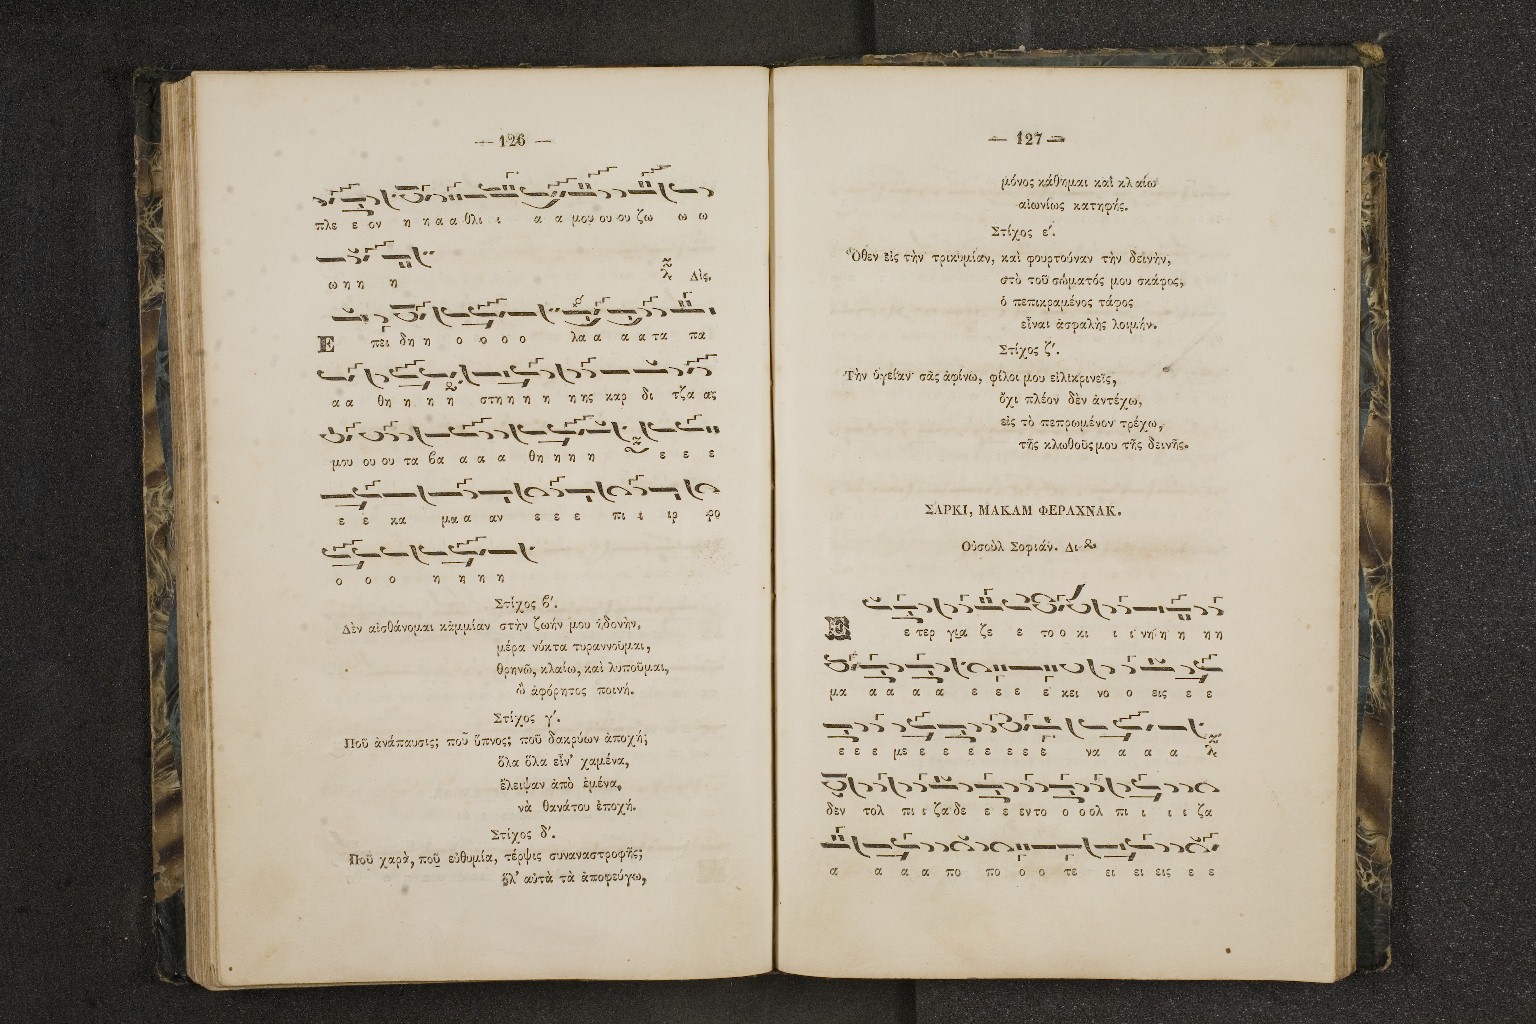 — 126 —
πλε ε ον η η α α θλι ι α α μου ου ου ζω ω ω
ω η η η Δὶς.
Ε πει δη η ο ο ο ο λα α α α τα πα
α α θη η η η στη η η η ης καρ δι τζα ας
μου ου ου τα βα α α α θη η η η ε ε ε
ε ε κα μα α α αν ε ε ε πι ι ιρ φο
ο ο ο η η η η
Στίχος β΄.
Δὲν αἰσθάνομαι κἀμμίαν στὴν ζωήν μου ἡδονὴν,
μέρα νύκτα τυραννοῦμαι,
θρηνῶ, κλαίω, καὶ λυποῦμαι,
ὢ ἀφόρητος ποινή.
Στίχος γ΄.
Ποῦ ἀνάπαυσις; ποῦ ὕπνος; ποῦ δακρύων ἀποχή;
ὅλα ὅλα εἶν' χαμένα,
ἔλειψαν ἀπὸ ἐμένα,
νὰ θανάτου ἐποχή.
Στίχος δ΄.
Ποῦ χαρὰ, ποῦ εὐθυμία, τέρψις συναναστροφῆς;
ὅλ' αὐτὰ τὰ ἀποφεύγω,
— 127 —
μόνος κάθημαι καὶ κλαίω
αἰωνίως κατηφής.
Στίχος ε΄.
Ὅθεν εἰς τὴν τρικυμίαν, καὶ φουρτούναν τὴν δεινὴν,
στὸ τοῦ σώματός μου σκάφος,
ὁ πεπικραμένος τάφος
εἶναι ἀσφαλὴς λοιμήν.
Στίχος ζ΄.
Τὴν ὑγείαν σᾶς ἀφίνω, φίλοι μου εἰλικρινεῖς,
ὄχι πλέον δὲν ἀντέχω,
εἰς τὸ πεπρωμένον τρέχω,
τῆς κλωθοῦς μου τῆς δεινῆς.
ΣΑΡΚΙ, ΜΑΚΑΜ ΦΕΡΑΧΝΑΚ.
Οὐσοὺλ Σοφιάν. Δι
Ε ε τερ για ζε ε το ο κι ι ι νη η η η η
μα α α α α ε ε ε ε κει νο ο εις ε ε
ε ε ε με ε ε ε ε ε ε ε να α α α
δεν τολ πι ι ζα δε ε ε εν το ο ο ολ πι ι ι ι ζα
α α α α πο πο ο ο τε ει ει εις ε ε